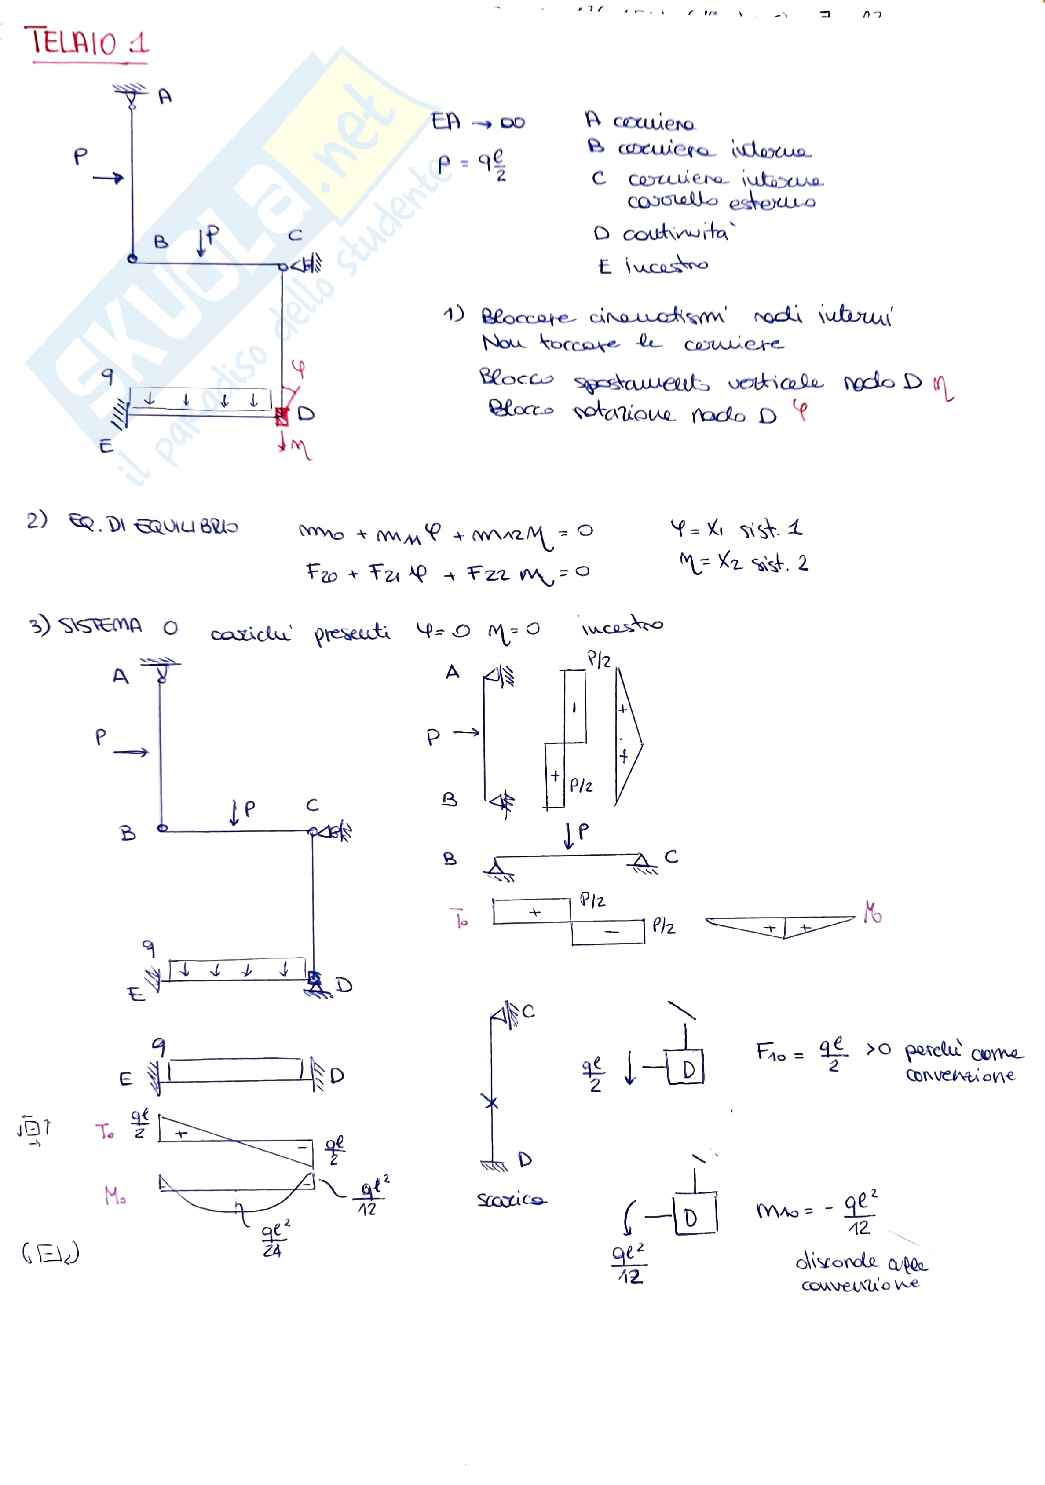 TELAIO 1
SKUOLA.net
il paradiso dello studente
A
P
B
P
C
q
E
D
φ
η
EA → ∞
P = qℓ/2
A cerniera
B cerniera interna
C cerniera interna
carrello esterno
D continuità
E incastro
1) Bloccare cinematismi nodi interni
Non toccare le cerniere
Blocco spostamento verticale nodo D η
Blocco rotazione nodo D φ
2) EQ. DI EQUILIBRIO
m10 + m11 φ + m12 η = 0
F20 + F21 φ + F22 η = 0
φ = X1 sist. 1
η = X2 sist. 2
3) SISTEMA 0 carichi presenti φ=0 η=0 incastro
A
P
B
P
C
q
E
D
A
P
B
P/2
-
+
P/2
+
+
P
B
C
T0
+
P/2
-
P/2
M0
+
+
q
E
D
T0
qℓ/2
+
-
qℓ/2
M0
-
qℓ²/12
qℓ²/24
C
D
scarico
qℓ/2
D
F10 = qℓ/2 >0 perché come
convenzione
qℓ²/12
D
m10 = - qℓ²/12
discorde alla
convenzione